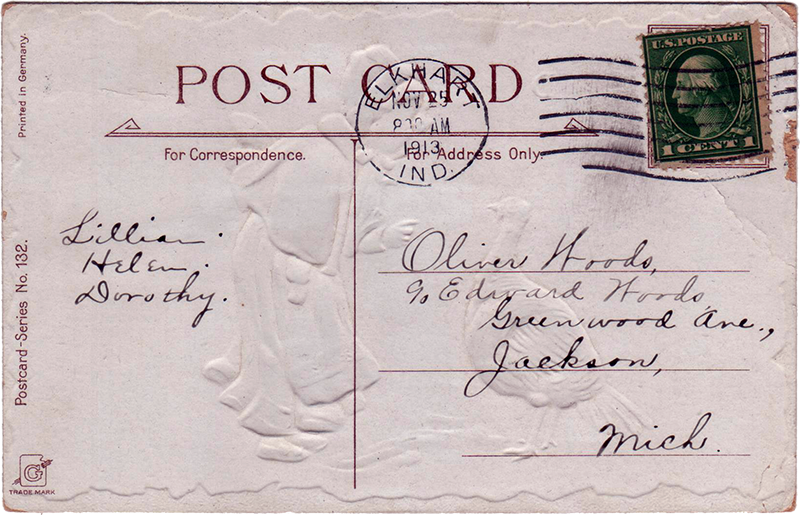 Printed in Germany.
POST CARD
ELKHART
NOV 25
AM
1913
IND.
U.S. POSTAGE
1 CENT 1
For Correspondence.
For Address Only.
Lillian.
Helen.
Dorothy.
Oliver Woods,
℅ Edward Woods,
Greenwood Ave.,
Jackson,
Mich.
Postcard-Series No. 132.
G
TRADE MARK